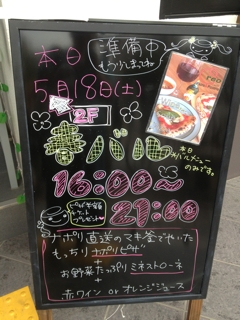 本日
準備中
もう少しまってね
5月18日(土)
2F
バル
本日
バルメニュー
のみです。
16:00〜
21:00
プレゼント
ナポリ直送のマキ釜でやいた
もっちりナポリピザ
+
お野菜たっぷりミネストローネ
+
赤ワイン or オレンジジュース